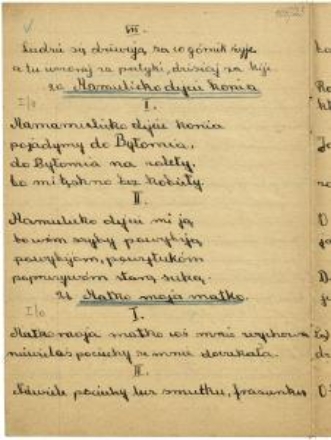 VII.
Ludzie są dziwują za co górnik żyje
a tu wczoraj za patyki, dzisiej za kije
20 Mamulicko dyjcie konia
I/a
I.
Mamamulicko dyjcie konia
pojadymy do Bytomia,
do Bytomia na zolyty,
bo mi tęskno bez kobiety.
II.
Mamulicko dyjcie mi ją
bo wóm szyby powybiją
powybijom, powytukóm
starą suką.
21 Matko moja matko.
I/a
I.
Matko moja matko coś mnie wychowała
niewielaś pociechy ze mnie doczekała.
II.
Niewiele pociechy lecz smutku, frasunku